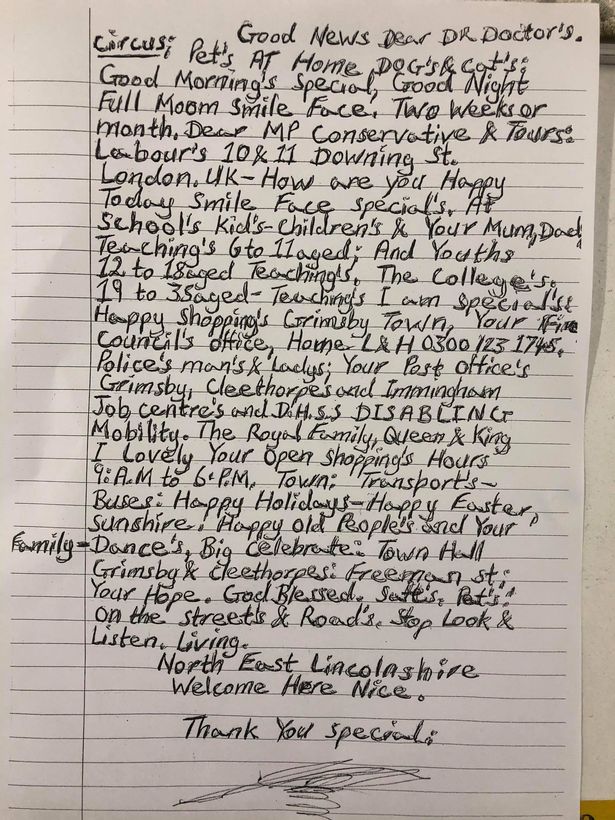 Good News Dear DR Doctor's.
Circus; Pet's AT Home DOG's & Cat's:
Good Morning's Special, Good Night
Full Moom Smile Face. Two weeks or
month. Dear MP Conservative & Tours:
Labour's 10 & 11 Downing St.
London. UK - How are you Happy
Today Smile Face special's. At
School's Kid's - Children's & Your Mum, Dad,
Teaching's 6 to 11 aged; And Youths
12 to 18 aged Teaching's. The College's.
19 to 35 aged - Teaching's I am special's:
Happy shopping's Grimsby Town, Your
Council's office, Home L & H 0300 123 1745.
Police's man's & Lady's; Your Post office's
Grimsby, Cleethorpe's and Immingham
Job centre's and D.H.S.S DISABLING
Mobility. The Royal Family, Queen & King
I Lovely Your open shopping's Hours
9: A.M to 6: P.M. Town: Transport's -
Buses: Happy Holidays - Happy Easter,
Sunshire. Happy old People's and Your
Family - Dance's, Big Celebrate: Town Hall
Grimsby & Cleethorpes: Freeman st;
Your Hope. God Blessed. Pet's:
on the street's & Road's. Stop Look &
Listen. Living.
North East Lincolnshire
Welcome Here Nice.
Thank You special: